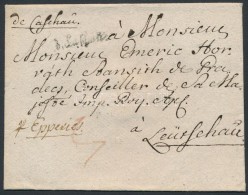 de Caschau.
à Monsieur
Monsieur Emeric Hor-
váth Stansith de Gra-
decz, Conseiller de Sa Ma-
jesté Imp. Roy. Ap.
à
Leütschau
pr Epperies